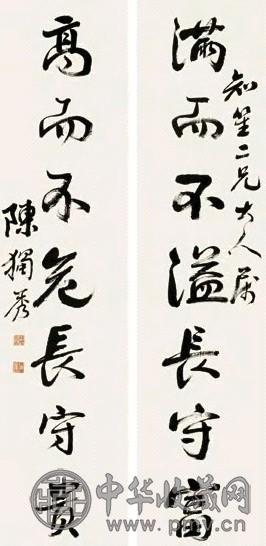 知笙二兄大人屬
滿而不溢長守富
高而不危長守貴
陳獨秀
中华收藏网
www.pmy.cn